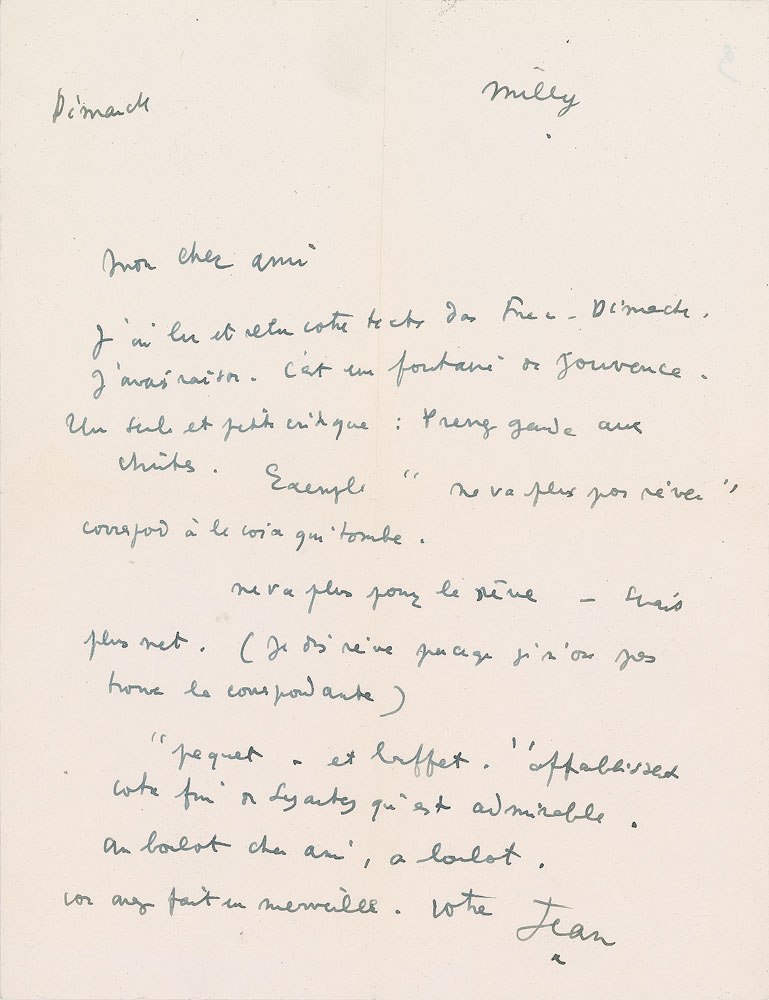 Dimanche
Milly
Mon cher ami
J'ai lu et relu votre texte dans France-Dimanche.
J'avais raison. C'est une fontaine de Jouvence.
Un seule et petite critique : Prenez garde aux
chutes. Exemple " ne va plus pas rêver "
correspond à la voix qui tombe.
ne va plus pour le rêve – serais
plus net. ( Je dis rêve parce que je n'ose pas
trouver la correspondante )
" paquet – et buffet. " affaiblissent
votre fin de qui est admirable.
Au boulot cher ami, au boulot.
vous avez fait une merveille. Votre Jean